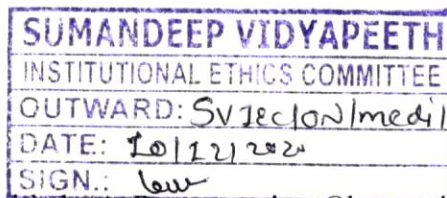 SUMANDEEP VIDYAPEETH
INSTITUTIONAL ETHICS COMMITTEE
OUTWARD: SVIEC/ON/medi/
DATE: 10/12/2020
SIGN.: